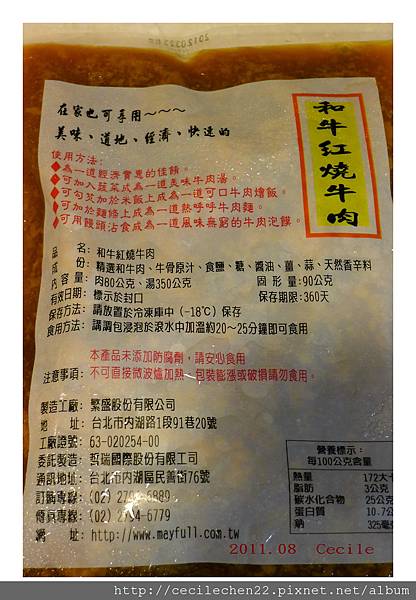 在家也可享用~~~
美味、道地、經濟、快速的
和牛紅燒牛肉
使用方法:
◆為一道經濟實惠的佳餚。
◆可加入蔬菜成為一道美味牛肉湯。
◆可勾芡加於米飯上成為一道可口牛肉燴飯。
◆可加於麵條上成為一道熱呼呼牛肉麵。
◆可用饅頭沾食成為一道風味無窮的牛肉泡饃。
品　　名: 和牛紅燒牛肉
成　　份: 精選和牛肉、牛骨原汁、食鹽、糖、醬油、薑、蒜、天然香辛料
內 容 量: 肉80公克、湯350公克　固 形 量:90公克
有效日期: 標示於封口　保存期限:360天
保存方法: 請放置於冷凍庫中 (-18℃) 保存
食用方法: 請調包浸泡於滾水中加溫約20~25分鐘即可食用
本產品未添加防腐劑，請安心食用
注意事項: 不可直接微波爐加熱、包裝膨漲或破損請勿食用。
製造工廠: 繁盛股份有限公司
地　　址: 台北市內湖路1段91巷20號
工廠證號: 63-020254-00
委託製造: 哲瑞國際股份有限公司
通訊地址: 台北市內湖區民善街76號
訂購專線: (02)
傳真專線: (02)
網　　址: http://www.mayfull.com.tw
營養標示:
每100公克含量
熱量 172大卡
脂肪 3公克
碳水化合物 25公克
蛋白質 10.7公
鈉 325毫
2011.08 Cecile
http://cecilechen22.pixnet.net/album